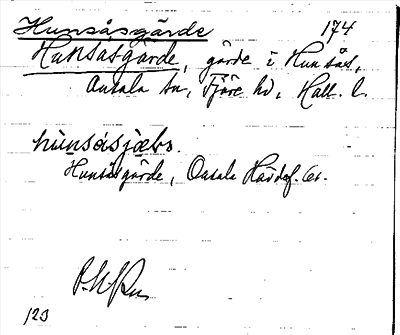 Hunsåsgärde 174
Hunsåsgärde, gärde i Hunsås,
Onsala sn, Fjäre hd, Hall. l.
hùnsåsjæbr.
Hunsåsgärde, Onsala
123